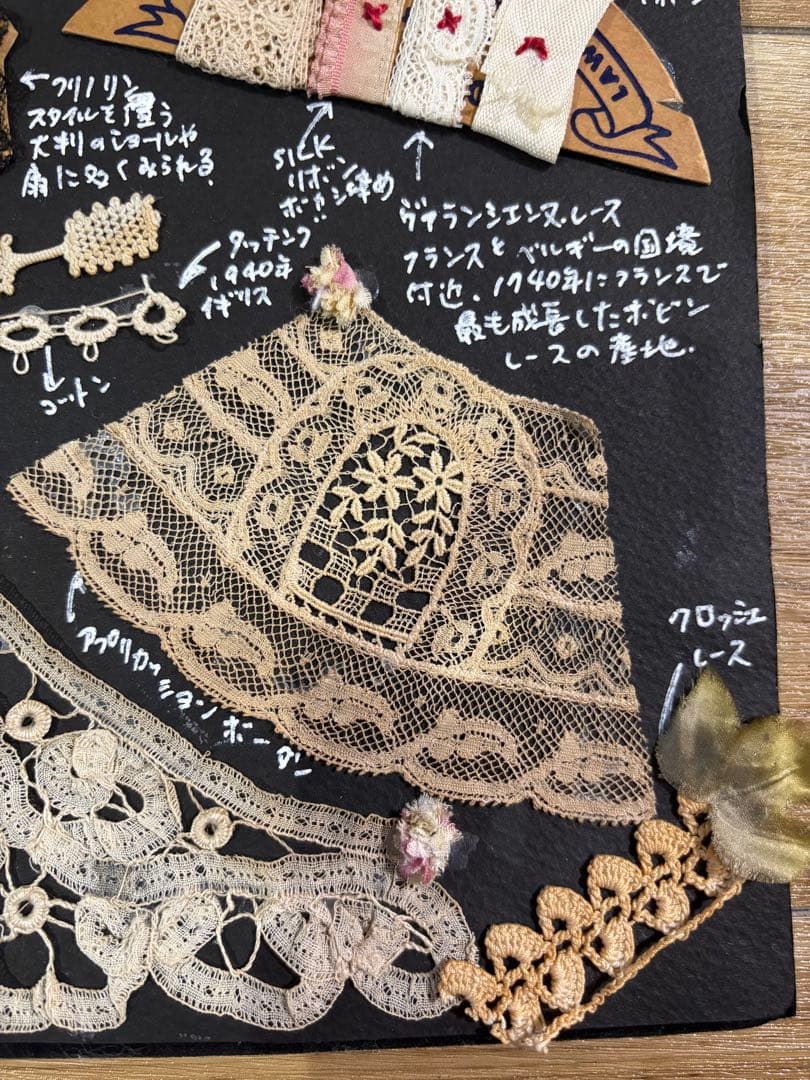 LAW
←クリノリン
スタイルを覆う
大判のショールや
扇に多くみられる.
SILK
リボン
ボカシ染め
ヴァランシエンヌ.レース
フランスとベルギーの国境
付近.1740年にフランスで
最も成長したボビン
レースの産地.
タッチング
1940年
イギリス
コットン
アプリカッション ホニトン
クロッシェ
レース